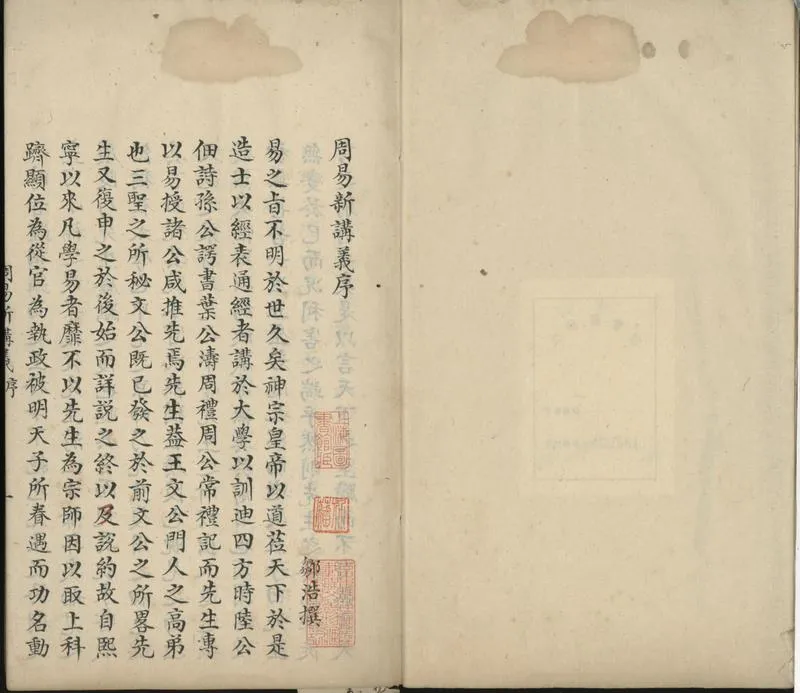 周易新講義序
鄒浩撰
易之㫖不明於世久矣神宗皇帝以道莅天下於是
造士以經表通經者講於大學以訓迪四方時陸公
佃詩孫公諤書葉公濤周禮周公常禮記而先生專
以易授諸公咸推先焉先生葢王文公門人之高弟
也三聖之所秘文公既已發之於前文公之所畧先
生又復申之於後始而詳說之終以及説約故自熙
寧以來凡學易者靡不以先生為宗師因以取上科
躋顯位為從官為執政被明天子所眷遇而功名動
周易新講義序
一